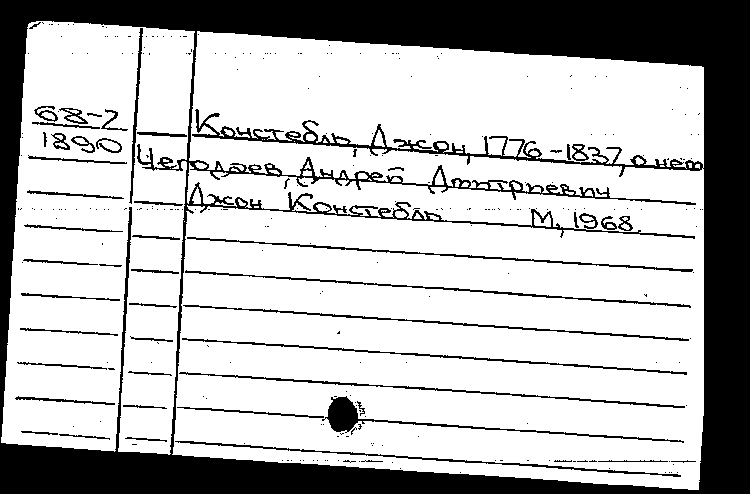 68-7
1890
Констебль, Джон, 1776-1837, о нем
Чегодаев, Андрей Дмитриевич
Джон Констебль М., 1968.